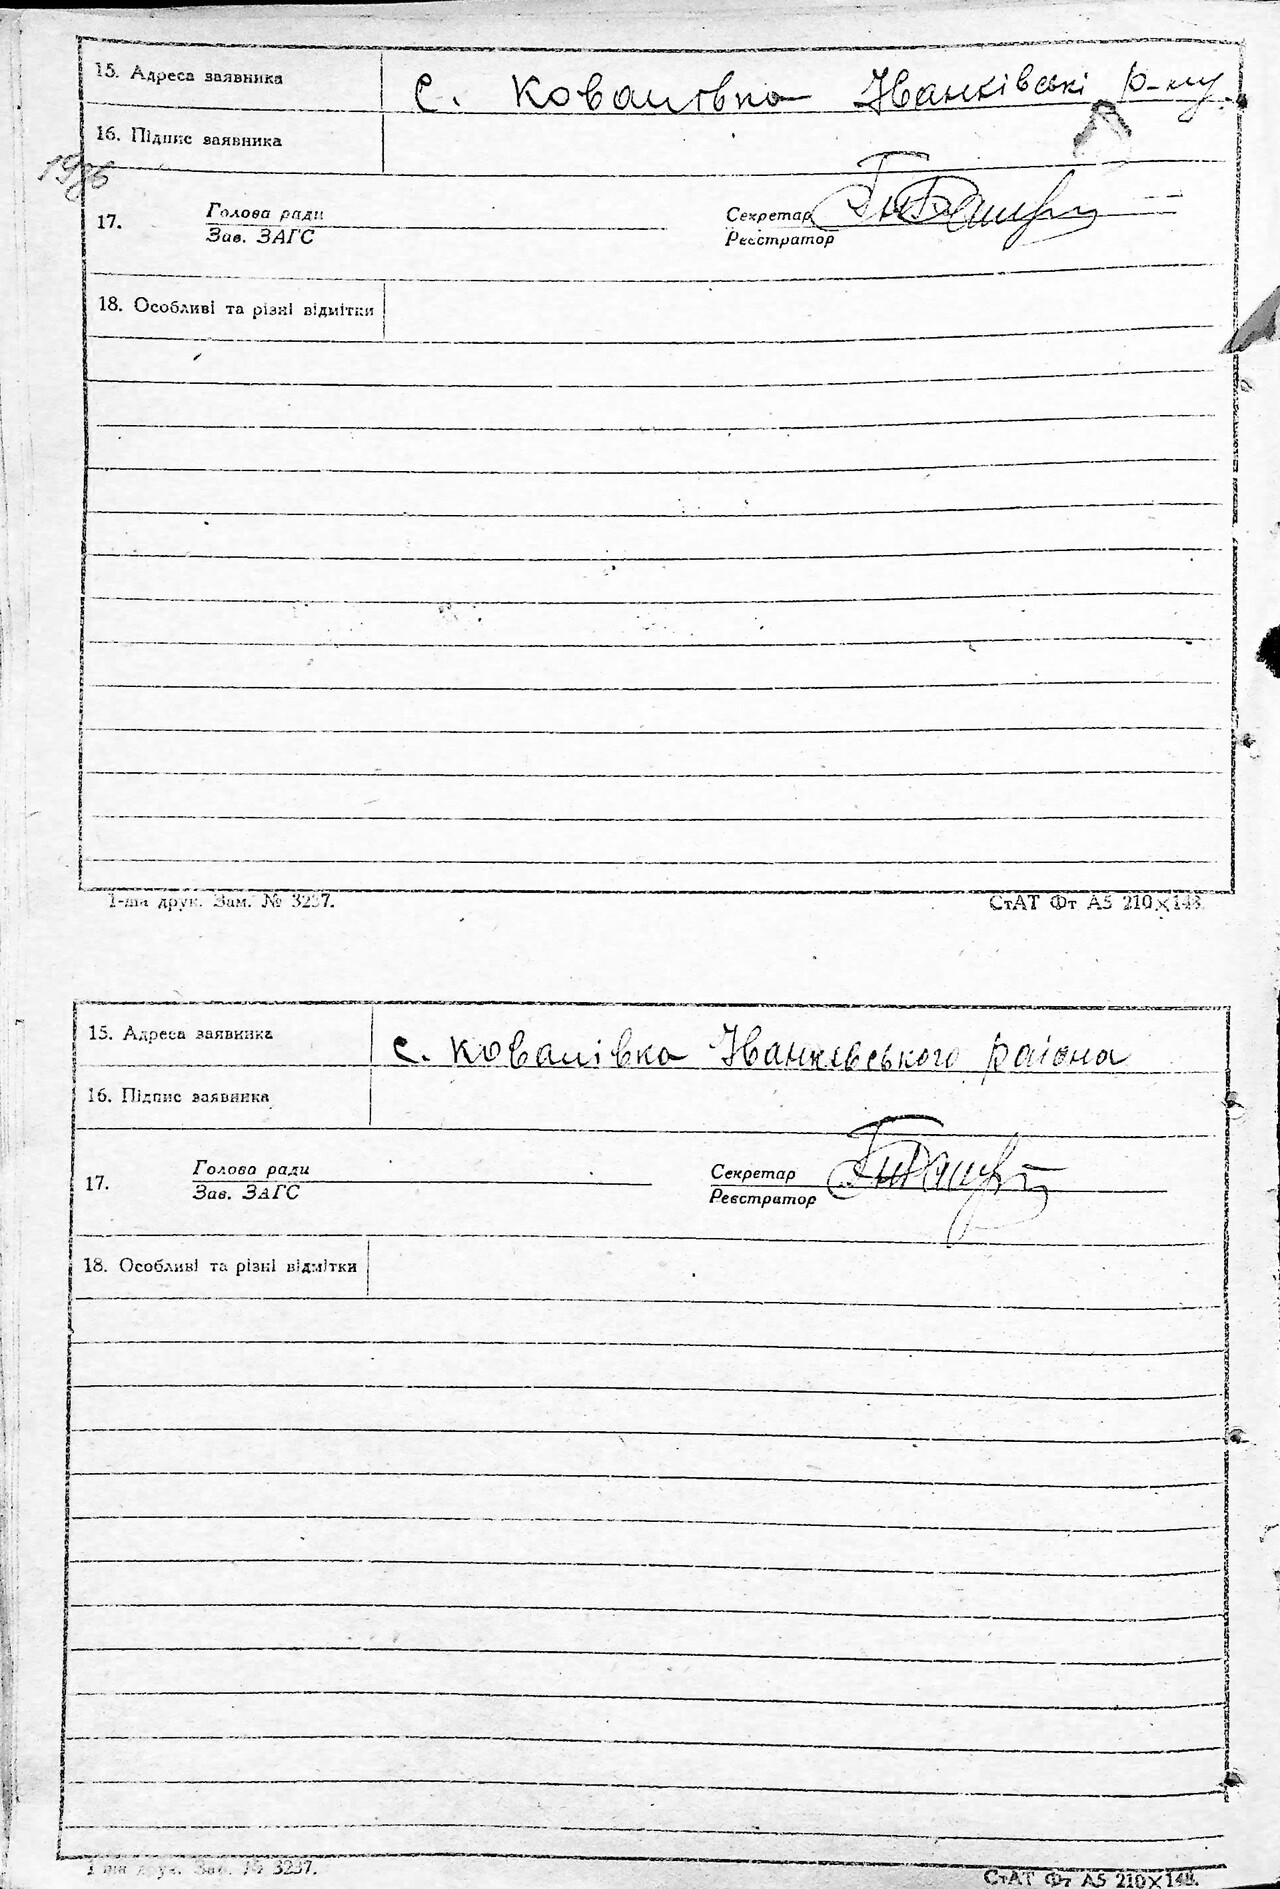 15. Адреса заявника с. Ковалівка Іванківські р-ну
16. Підпис заявника
17. Голова ради
Зав. ЗАГС
Секретар
Реєстратор
18. Особливі та різні відмітки
1-ша друк. Зам. № 3237. СтАТ Фт А5 210×148.
15. Адреса заявника с. Ковалівка Іванківського района
16. Підпис заявника
17. Голова ради
Зав. ЗАГС
Секретар
Реєстратор
18. Особливі та різні відмітки
1-ша друк. Зам. № 3237. СтАТ Фт А5 210×148.